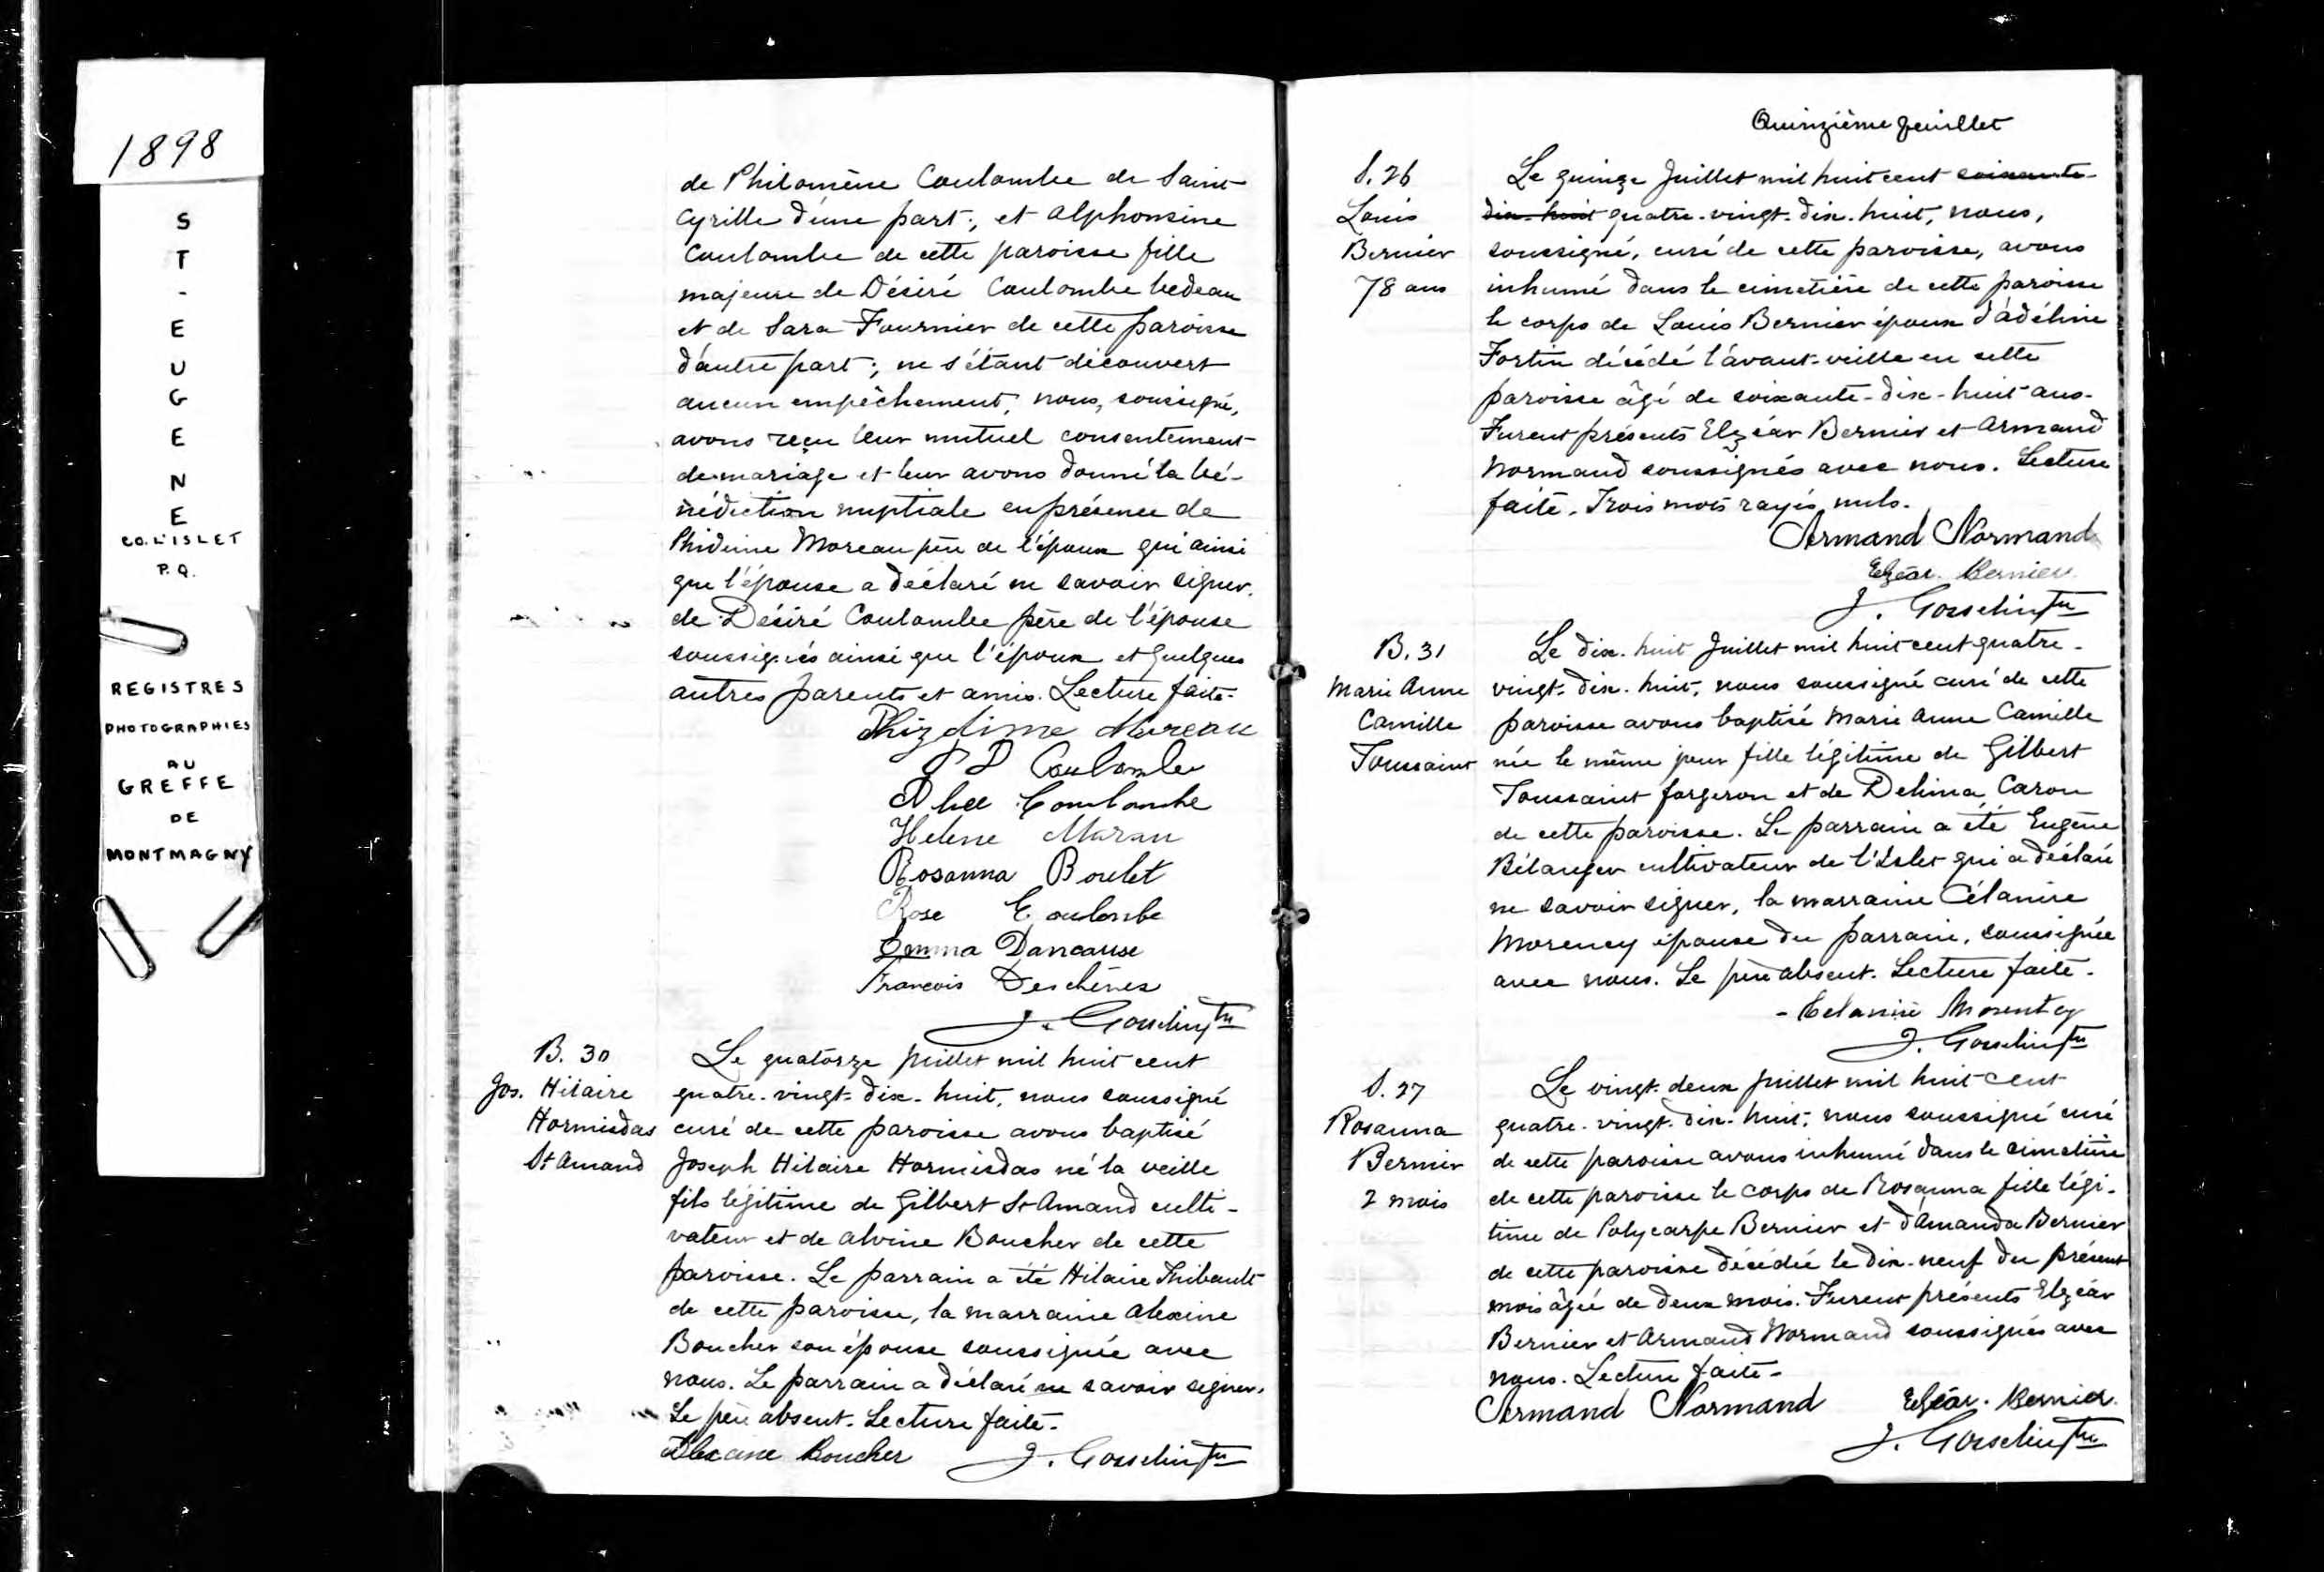 1898
S
T
-
E
U
G
E
N
E
CO. L'ISLET
P.Q.
REGISTRES
PHOTOGRAPHIES
AU
GREFFE
DE
MONTMAGNY
de Philomène Coulombe de Saint
Cyrille d'une part; et Alphonsine
Coulombe de cette paroisse fille
majeure de Désiré Coulombe bedeau
et de Sara Fournier de cette paroisse
d'autre part; ne s'étant découvert
aucun empêchement, nous, soussigné,
avons reçu leur mutuel consentement
de mariage et leur avons donné la bé-
nédiction nuptiale en présence de
Phidime Moreau père de l'époux qui ainsi
que l'épouse a déclaré ne savoir signer,
de Désiré Coulombe père de l'épouse
soussignés ainsi que l'époux et quelques
autres parents et amis. Lecture faite.
Phizdime Moreau
Coulombe
Coulombe
Helene
Rosanna Boulet
Rose Coulombe
Emma Dancause
François Deschênes
J. Gosselin Ptre
B. 30
Jos. Hilaire
Hormisdas
St Amand
Le quatorze juillet mil huit cent
quatre-vingt-dix-huit, nous soussigné
curé de cette paroisse avons baptisé
Joseph Hilaire Hormisdas né la veille
fils légitime de Gilbert St Amand culti-
vateur et de Alvine Boucher de cette
paroisse. Le parrain a été Hilaire Thibault
de cette paroisse, la marraine Alexine
Boucher son épouse soussignée avec
nous. Le parrain a déclaré ne savoir signer.
Le père absent. Lecture faite.
Boucher J. Gosselin Ptre
Quinzième feuillet
S. 26
Louis
Bernier
78 ans
Le quinze Juillet mil huit cent soixante-
dix-huit quatre-vingt-dix-huit, nous,
soussigné, curé de cette paroisse, avons
inhumé dans le cimetière de cette paroisse
le corps de Louis Bernier époux d'Adéline
Fortin décédé l'avant-veille en cette
paroisse âgé de soixante-dix-huit ans.
Furent présents Elzéar Bernier et Armand
Normand soussignés avec nous. Lecture
faite. Trois mots rayés nuls.
Armand Normand
Elzéar. Bernier.
J. Gosselin Ptre
B. 31
Marie Anne
Camille
Toussaint
Le dix-huit Juillet mil huit cent quatre-
vingt-dix-huit, nous soussigné curé de cette
paroisse avons baptisé Marie Anne Camille
née le même jour fille légitime de Gilbert
Toussaint forgeron et de Delima Caron
de cette paroisse. Le parrain a été Eugène
Bélanger cultivateur de l'Islet qui a déclaré
ne savoir signer, la marraine Célanire
Morency épouse du parrain, soussignée
avec nous. Le père absent. Lecture faite.
Morency
J. Gosselin Ptre
S. 27
Rosanna
Bernier
2 mois
Le vingt-deux juillet mil huit cent
quatre-vingt-dix-huit, nous soussigné curé
de cette paroisse avons inhumé dans le cimetière
de cette paroisse le corps de Rosanna fille légi-
time de Polycarpe Bernier et d'Amanda Bernier
de cette paroisse décédée le dix-neuf du présent
mois âgée de deux mois. Furent présents Elzéar
Bernier et Armand Normand soussignés avec
nous. Lecture faite.
Armand Normand Elzéar. Bernier.
J. Gosselin Ptre